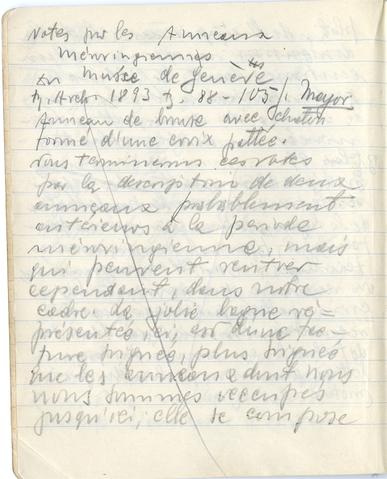 Notes sur les Anneaux
mérovingiennes
du Musée de Genève
R. Arch. 1893 p. 88-105/. Mayor
Anneau de bronze avec chaton
forme d'une croix pattée.
Nous terminerons ces notes
par la description de deux
anneaux probablement
antérieurs à la période
mérovingienne, mais
qui peuvent rentrer
cependant, dans notre
cadre. La jolie bague re-
présentée ici, est d'une fac-
ture soignée, plus soignée
que les anneaux dont nous
nous sommes occupés
jusqu'ici; elle se compose